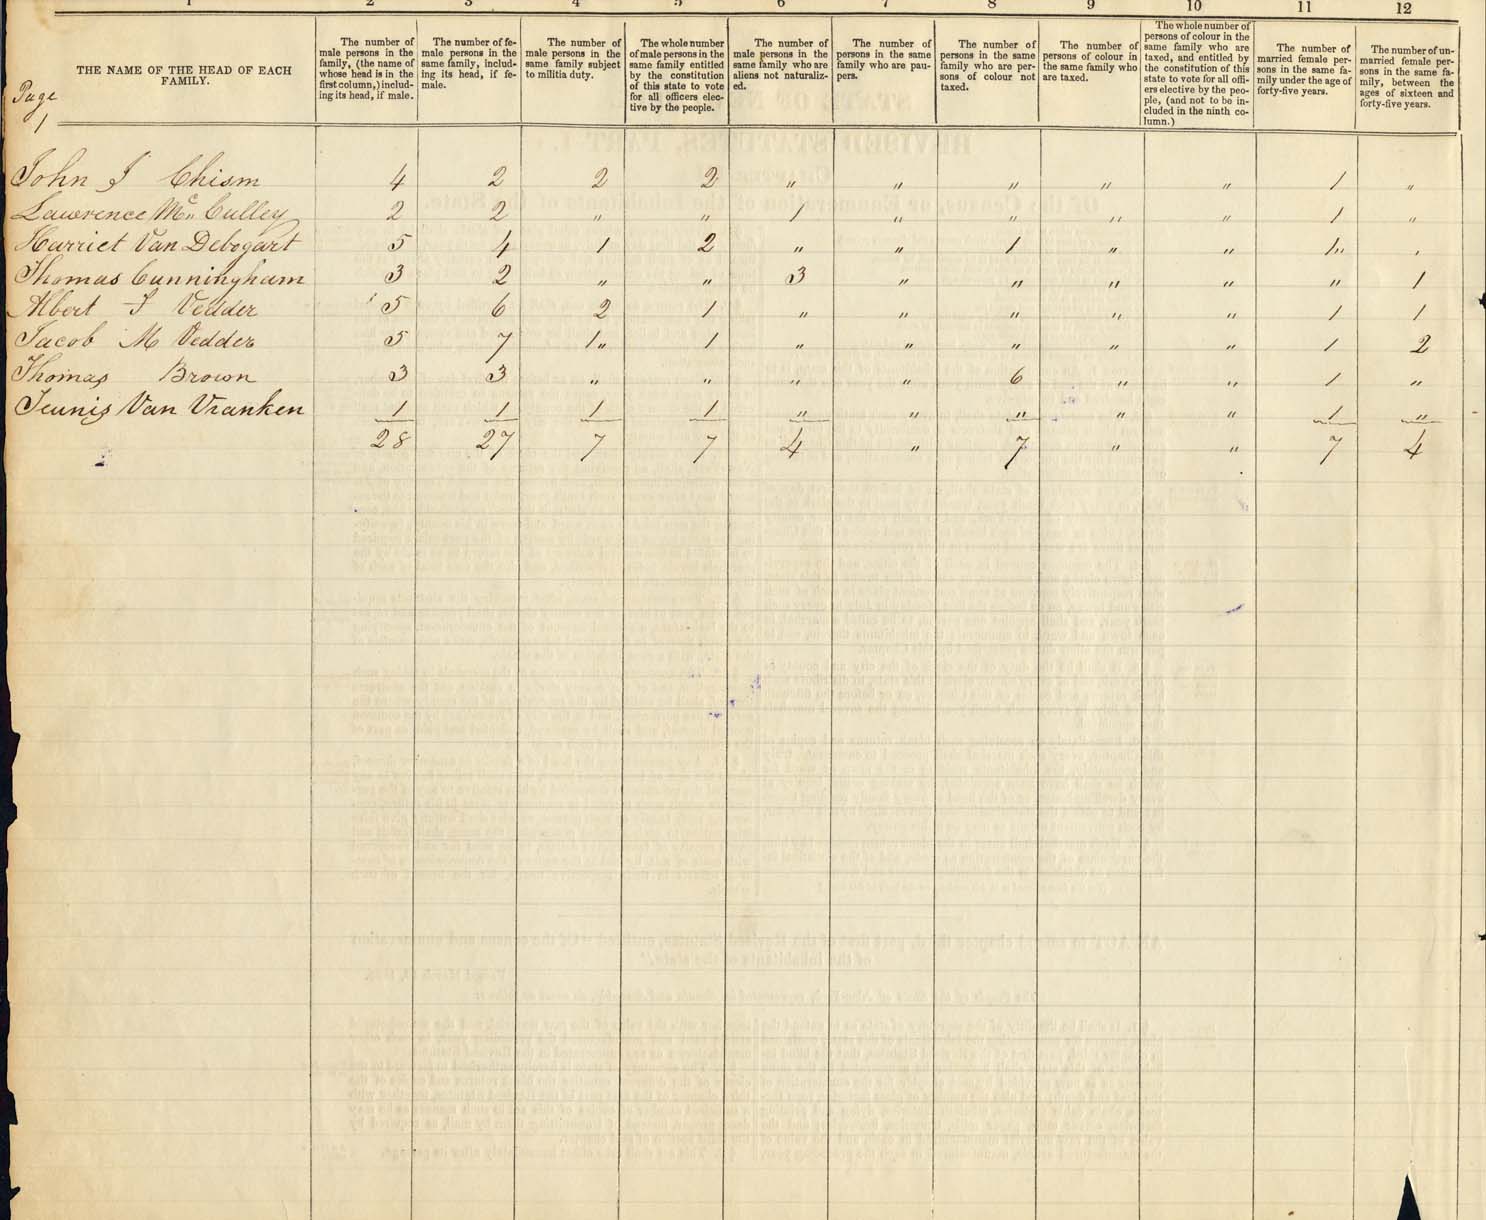 1 2 3 4 5 6 7 8 9 10 11 12
THE NAME OF THE HEAD OF EACH
FAMILY.
The number of
male persons in the
family, (the name of
whose head is in the
first column,) includ-
ing its head, if male.
The number of fe-
male persons in the
same family, includ-
ing its head, if fe-
male.
The number of
male persons in the
same family subject
to militia duty.
The whole number
of male persons in the
same family entitled
by the constitution
of this state to vote
for all officers elec-
tive by the people.
The number of
male persons in the
same family who are
aliens not naturaliz-
ed.
The number of
persons in the same
family who are pau-
pers.
The number of
persons in the same
family who are per-
sons of colour not
taxed.
The number of
persons of colour in
the same family who
are taxed.
The whole number of
persons of colour in the
same family who are
taxed, and entitled by
the constitution of this
state to vote for all offi-
cers elective by the peo-
ple, (and not to be in-
cluded in the ninth co-
lumn.)
The number of
married female per-
sons in the same fa-
mily under the age of
forty-five years.
The number of un-
married female per-
sons in the same fa-
mily, between the
ages of sixteen and
forty-five years.
Page
1
John J Chism 4 2 2 2 " " " " " 1 "
Lawrence Mc Culley 2 2 " " 1 " " " " 1 "
Harriet Van Debogart 5 4 1 2 " " 1 " " 1" "
Thomas Cunningham 3 2 " " 3 " " " " " 1
Albert J Vedder 5 6 2 1 " " " " " 1 1
Jacob M Vedder 5 7 1" 1 " " " " " 1 2
Thomas Brown 3 3 " " " " 6 " " 1 "
Teunis Van Vranken 1 1 1 1 " " " " " 1 "
28 27 7 7 4 " 7 " " 7 4